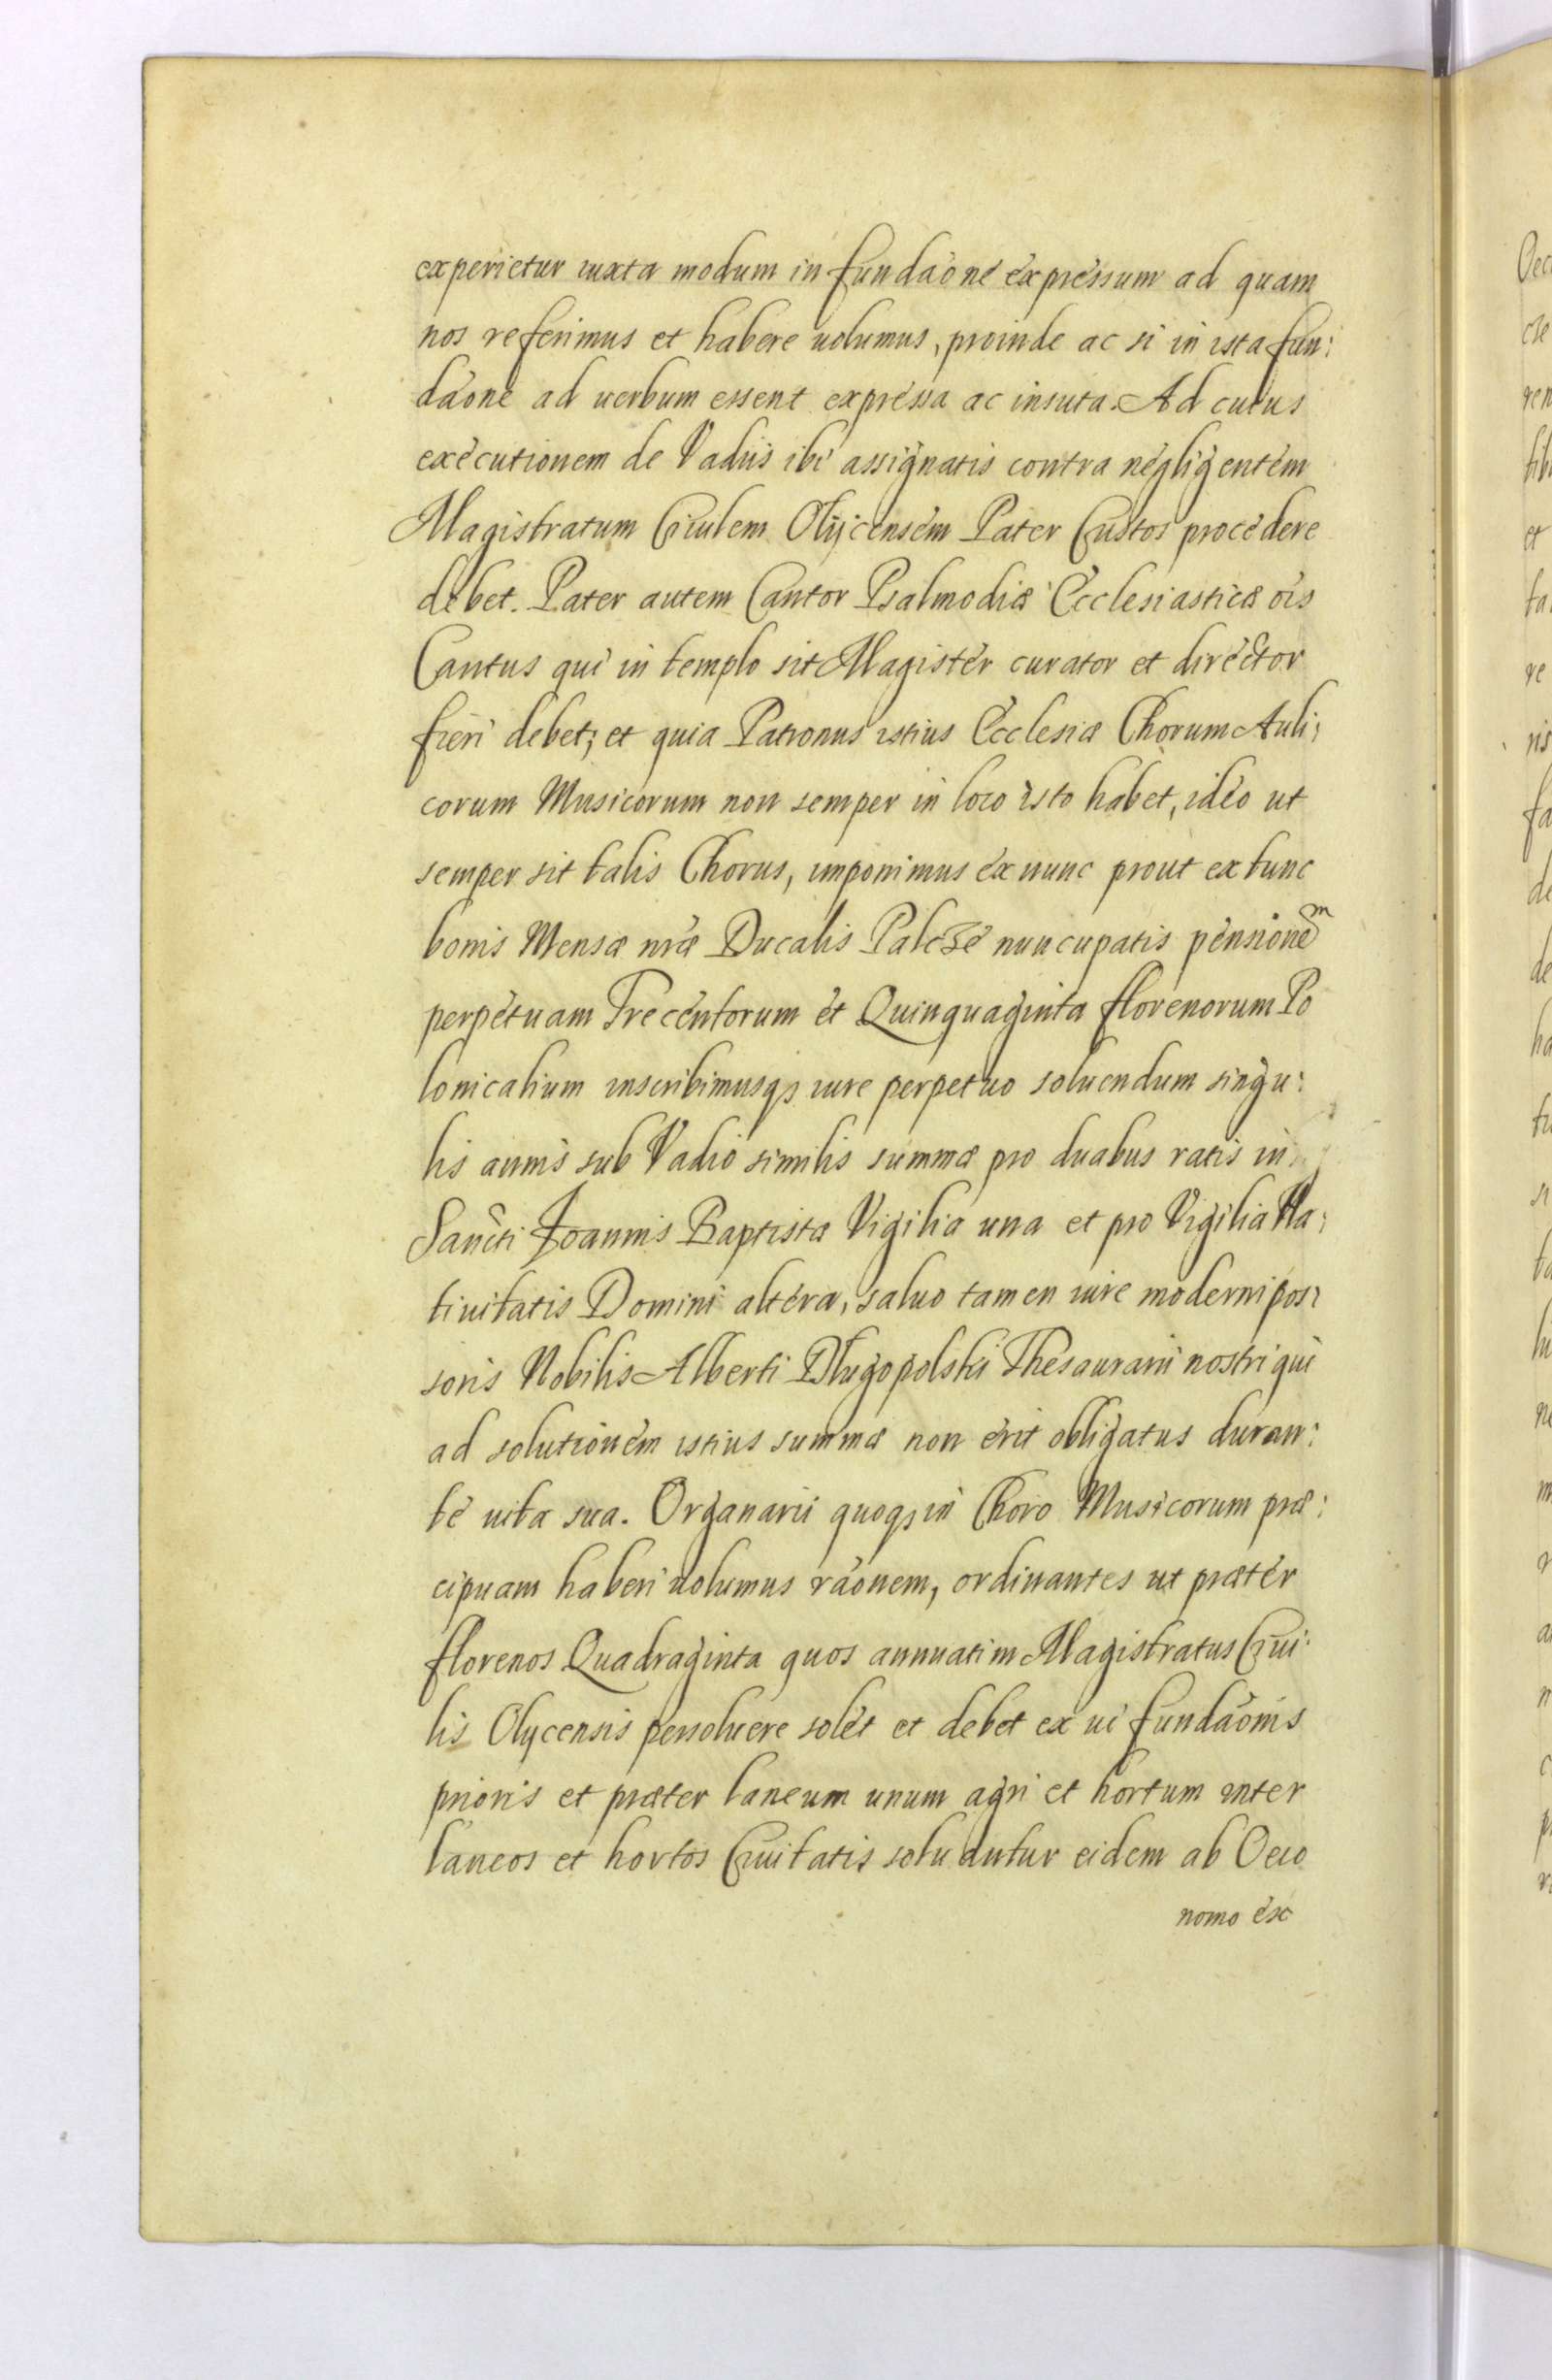 experietur iuxta modum in fundaone expressum ad quam
nos referimus et habere uolumus, proinde ac si in ista fun:
daone ad uerbum essent expressa ac insuta. Ad cuius
executionem de Vadiis ibi assignatis contra negligentem
Magistratum Ciuilem Olÿcensem Pater Custos procedere
debet. Pater autem Cantor Psalmodiæ Ecclesiasticæ ois
Cantus qui in templo sit Magister curator et director
fieri debet; et quia Patronus istius Ecclesiæ Chorum Auli;
corum Musicorum non semper in loco isto habet, ideo ut
semper sit talis Chorus, imponimus ex nunc prout ex tunc
bonis Mensæ nræ Ducalis Palcze nuncupatis pensionem
perpetuam Trecentorum et Quinquaginta florenorum Po
lonicalium inscribimusqꝫ iure perpetuo soluendum singu:
lis annis sub Vadio similis summæ pro duabus ratis in
Sancti Joannis Baptistæ Vigilia una et pro Vigilia Na:
tiuitatis Domini altera, saluo tamen iure moderni pos:
soris Nobilis Alberti Dlugopolski Thesaurarii nostri qui
ad solutionem istius summæ non erit obligatus duran:
te uita sua. Organarii quoqꝫ in Choro Musicorum præ:
cipuam haberi uolumus raonem, ordinantes ut præter
florenos Quadraginta quos annuatim Magistratus Ciui:
lis Olycensis persoluere solet et debet ex ui fundaonis
prioris et præter laneum unum agri et hortum inter
laneos et hortos Ciuitatis soluantur eidem ab Oeco
nomo ex